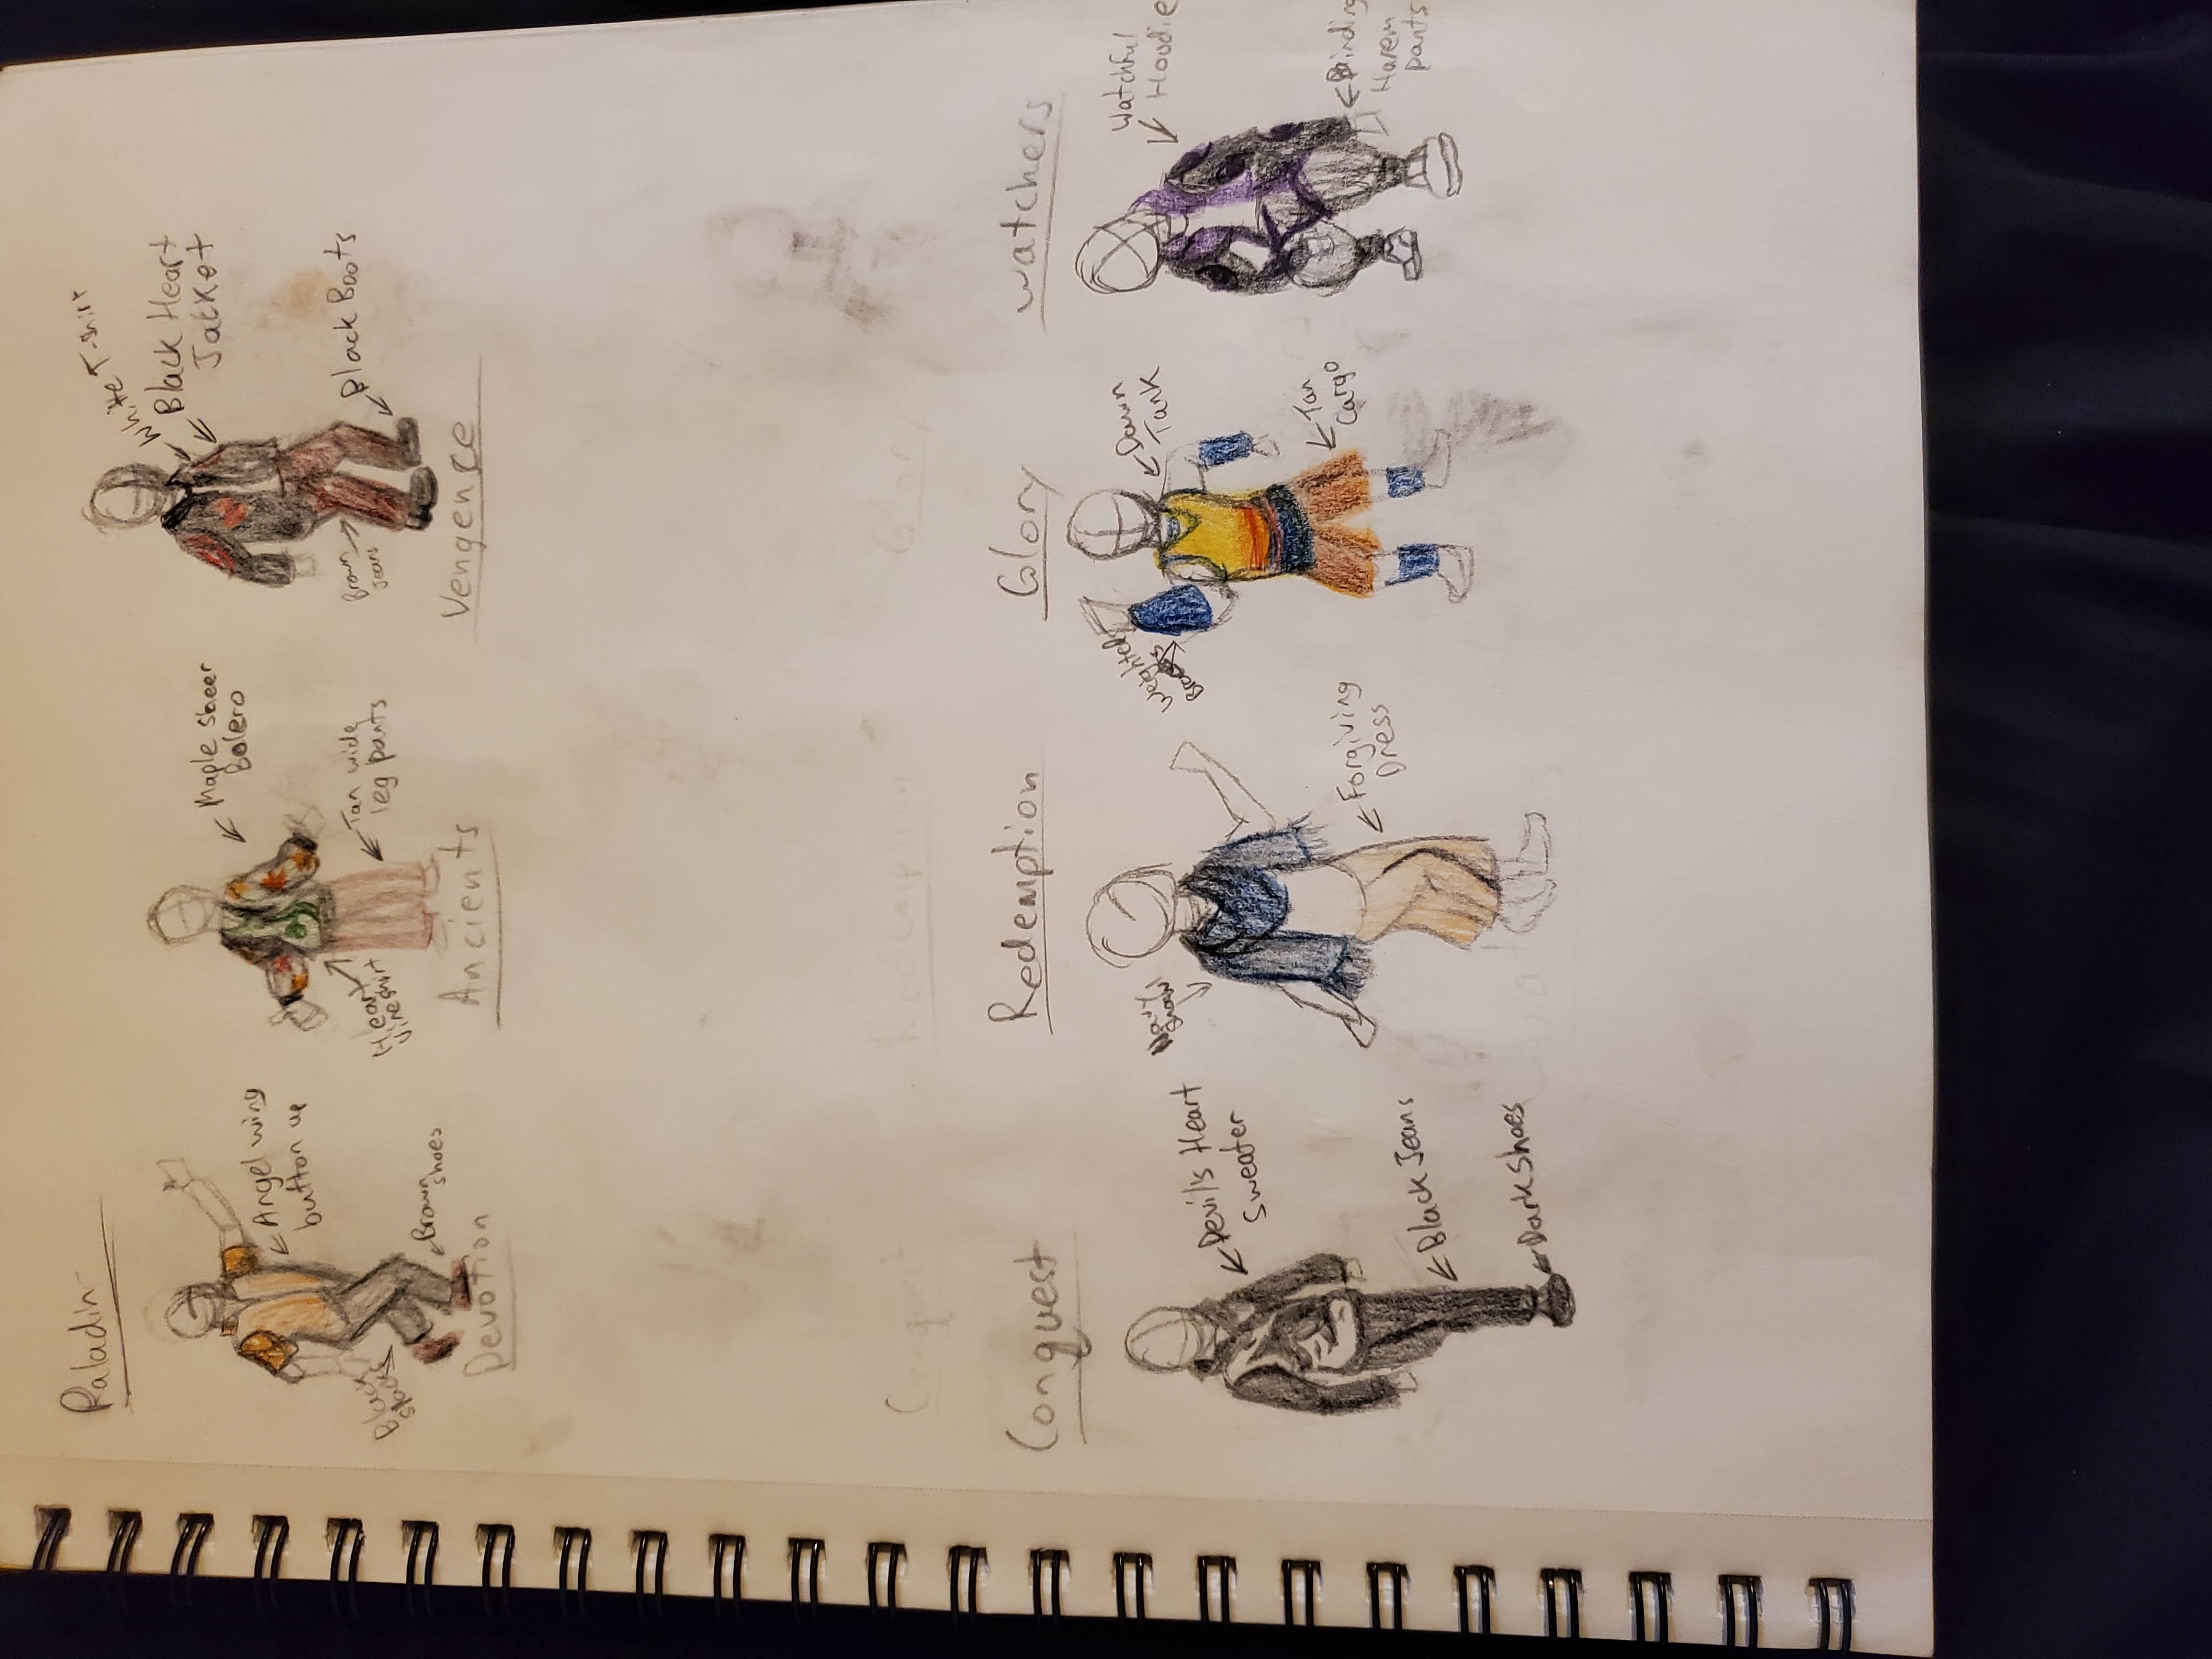 Paladin
Angel wing
button up
Black
slacks
Brown
shoes
Devotion
Maple sheer
Bolero
Heart
Vine shirt
Tan wide
leg pants
Ancients
White T-shirt
Black Heart
Jacket
Brown
Jeans
Black Boots
Vengence
Conquest
Redemption
Glory
Conquest
Devil's Heart
sweater
Black Jeans
Dark shoes
Redemption
Navy
shawl
Forgiving
Dress
Glory
Weighted
Dawn
Tank
Tan
Cargo
Watchers
Watchful
Hoodie
Binding
Harem
pants